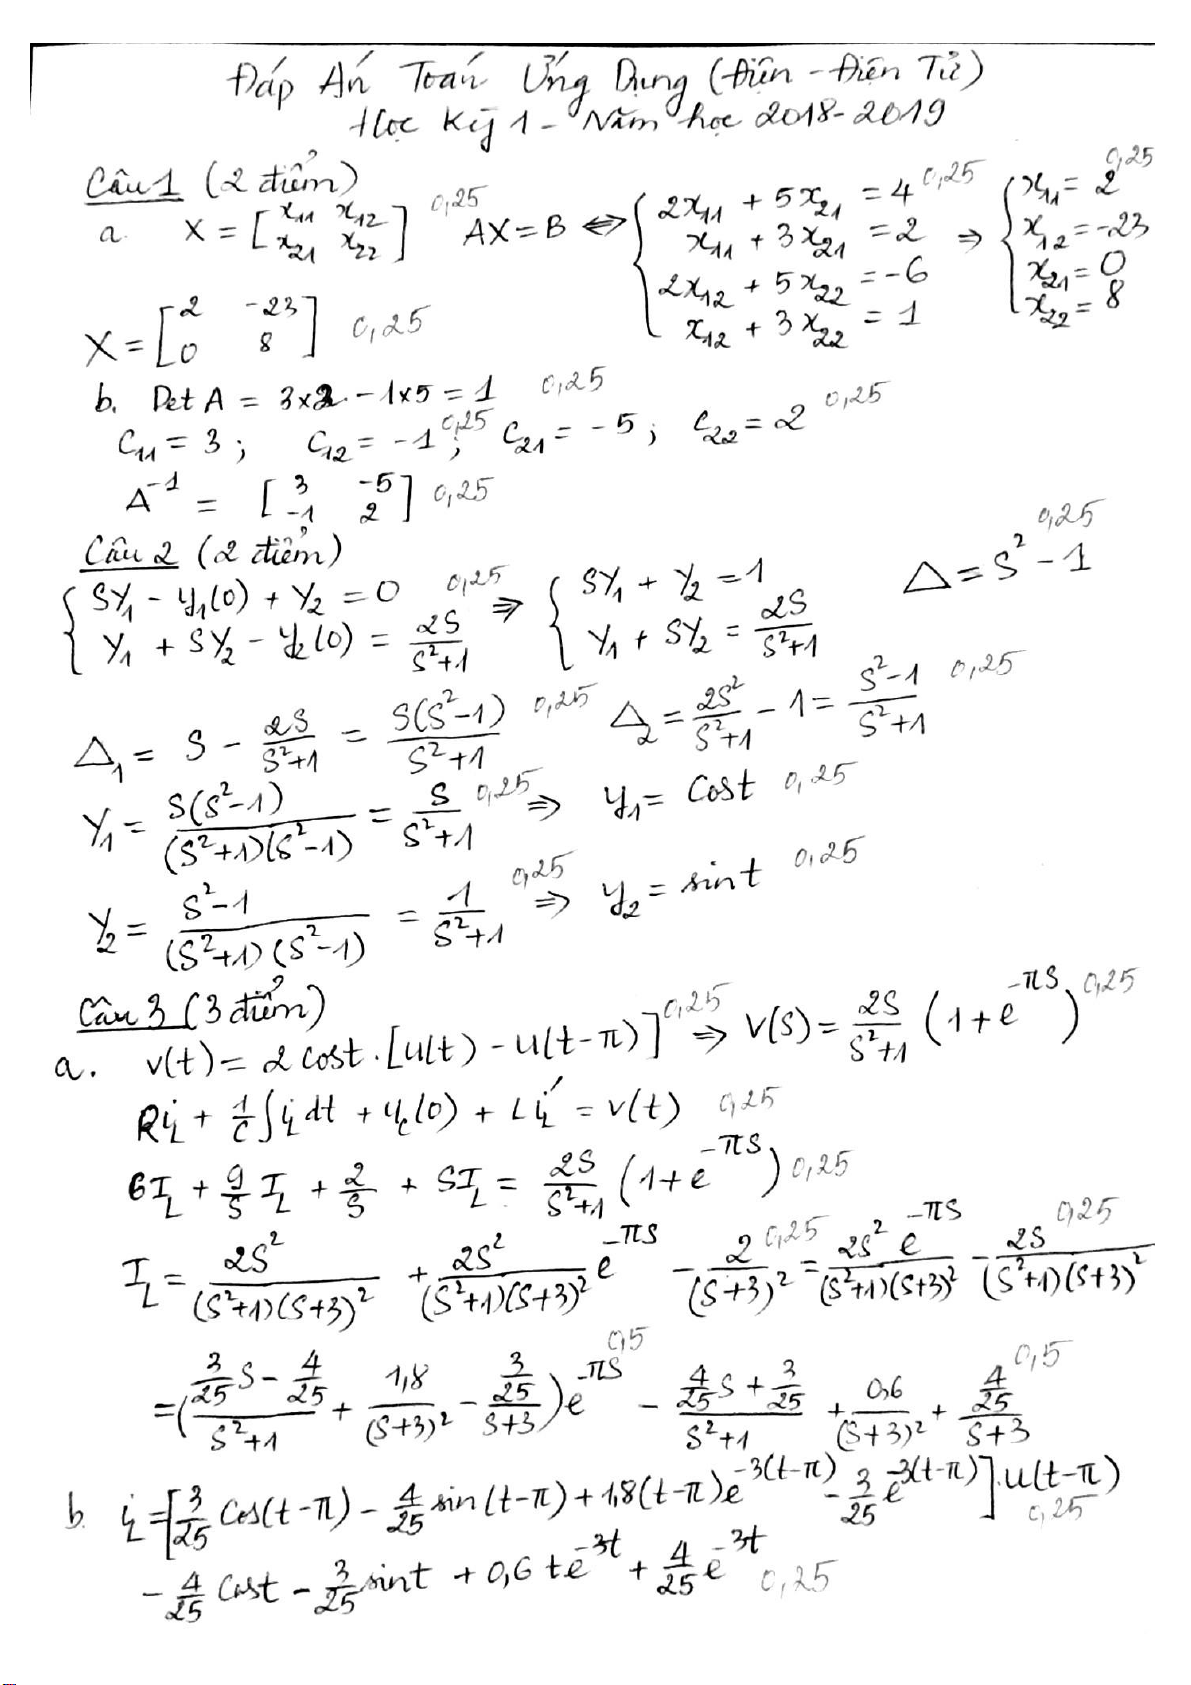 Đáp Án Toán Ứng Dụng (Điện - Điện Tử)
Học Kỳ 1 - Năm học 2018-2019
Câu 1 (2 điểm)
a. X = [x₁₁ x₁₂; x₂₁ x₂₂] 0,25 AX = B ⇔ { 2x₁₁ + 5x₂₁ = 4 0,25; x₁₁ + 3x₂₁ = 2; 2x₁₂ + 5x₂₂ = -6; x₁₂ + 3x₂₂ = 1 ⇒ { x₁₁ = 2 0,25; x₁₂ = -23; x₂₁ = 0; x₂₂ = 8
X = [2 -23; 0 8] 0,25
b. Det A = 3x2 - 1x5 = 1 0,25
C₁₁ = 3 ; C₁₂ = -1 0,25 ; C₂₁ = -5 ; C₂₂ = 2 0,25
A⁻¹ = [3 -5; -1 2] 0,25
Câu 2 (2 điểm)
{ SY₁ - y₁(0) + Y₂ = 0 0,25; Y₁ + SY₂ - y₂(0) = 2S/(S²+1) ⇒ { SY₁ + Y₂ = 1; Y₁ + SY₂ = 2S/(S²+1) Δ = S² - 1 0,25
Δ₁ = S - 2S/(S²+1) = S(S²-1)/(S²+1) 0,25 Δ₂ = 2S²/(S²+1) - 1 = (S²-1)/(S²+1) 0,25
Y₁ = S(S²-1)/((S²+1)(S²-1)) = S/(S²+1) 0,25 ⇒ y₁ = Cost 0,25
Y₂ = (S²-1)/((S²+1)(S²-1)) = 1/(S²+1) 0,25 ⇒ y₂ = sint 0,25
Câu 3 (3 điểm)
a. v(t) = 2cost.[u(t) - u(t-π)] 0,25 ⇒ V(S) = 2S/(S²+1) (1+e^(-πS)) 0,25
Ri_L + 1/C ∫i_L dt + u_c(0) + Li_L' = v(t) 0,25
6I_L + 9/S I_L + 2/S + SI_L = 2S/(S²+1) (1+e^(-πS)) 0,25
I_L = 2S²/((S²+1)(S+3)²) + 2S²/((S²+1)(S+3)²) e^(-πS) - 2/(S+3)² 0,25 = 2S² e^(-πS)/((S²+1)(S+3)²) - 2S/((S²+1)(S+3)²) 0,25
= ((3/25 S - 4/25)/(S²+1) + 1,8/(S+3)² - (3/25)/(S+3)) e^(-πS) 0,5 - (4/25 S + 3/25)/(S²+1) + 0,6/(S+3)² + (4/25)/(S+3) 0,5
b. i_L = [3/25 Cos(t-π) - 4/25 sin(t-π) + 1,8(t-π)e^(-3(t-π)) - 3/25 e^(-3(t-π))].u(t-π) 0,25
- 4/25 Cost - 3/25 sint + 0,6 te^(-3t) + 4/25 e^(-3t) 0,25